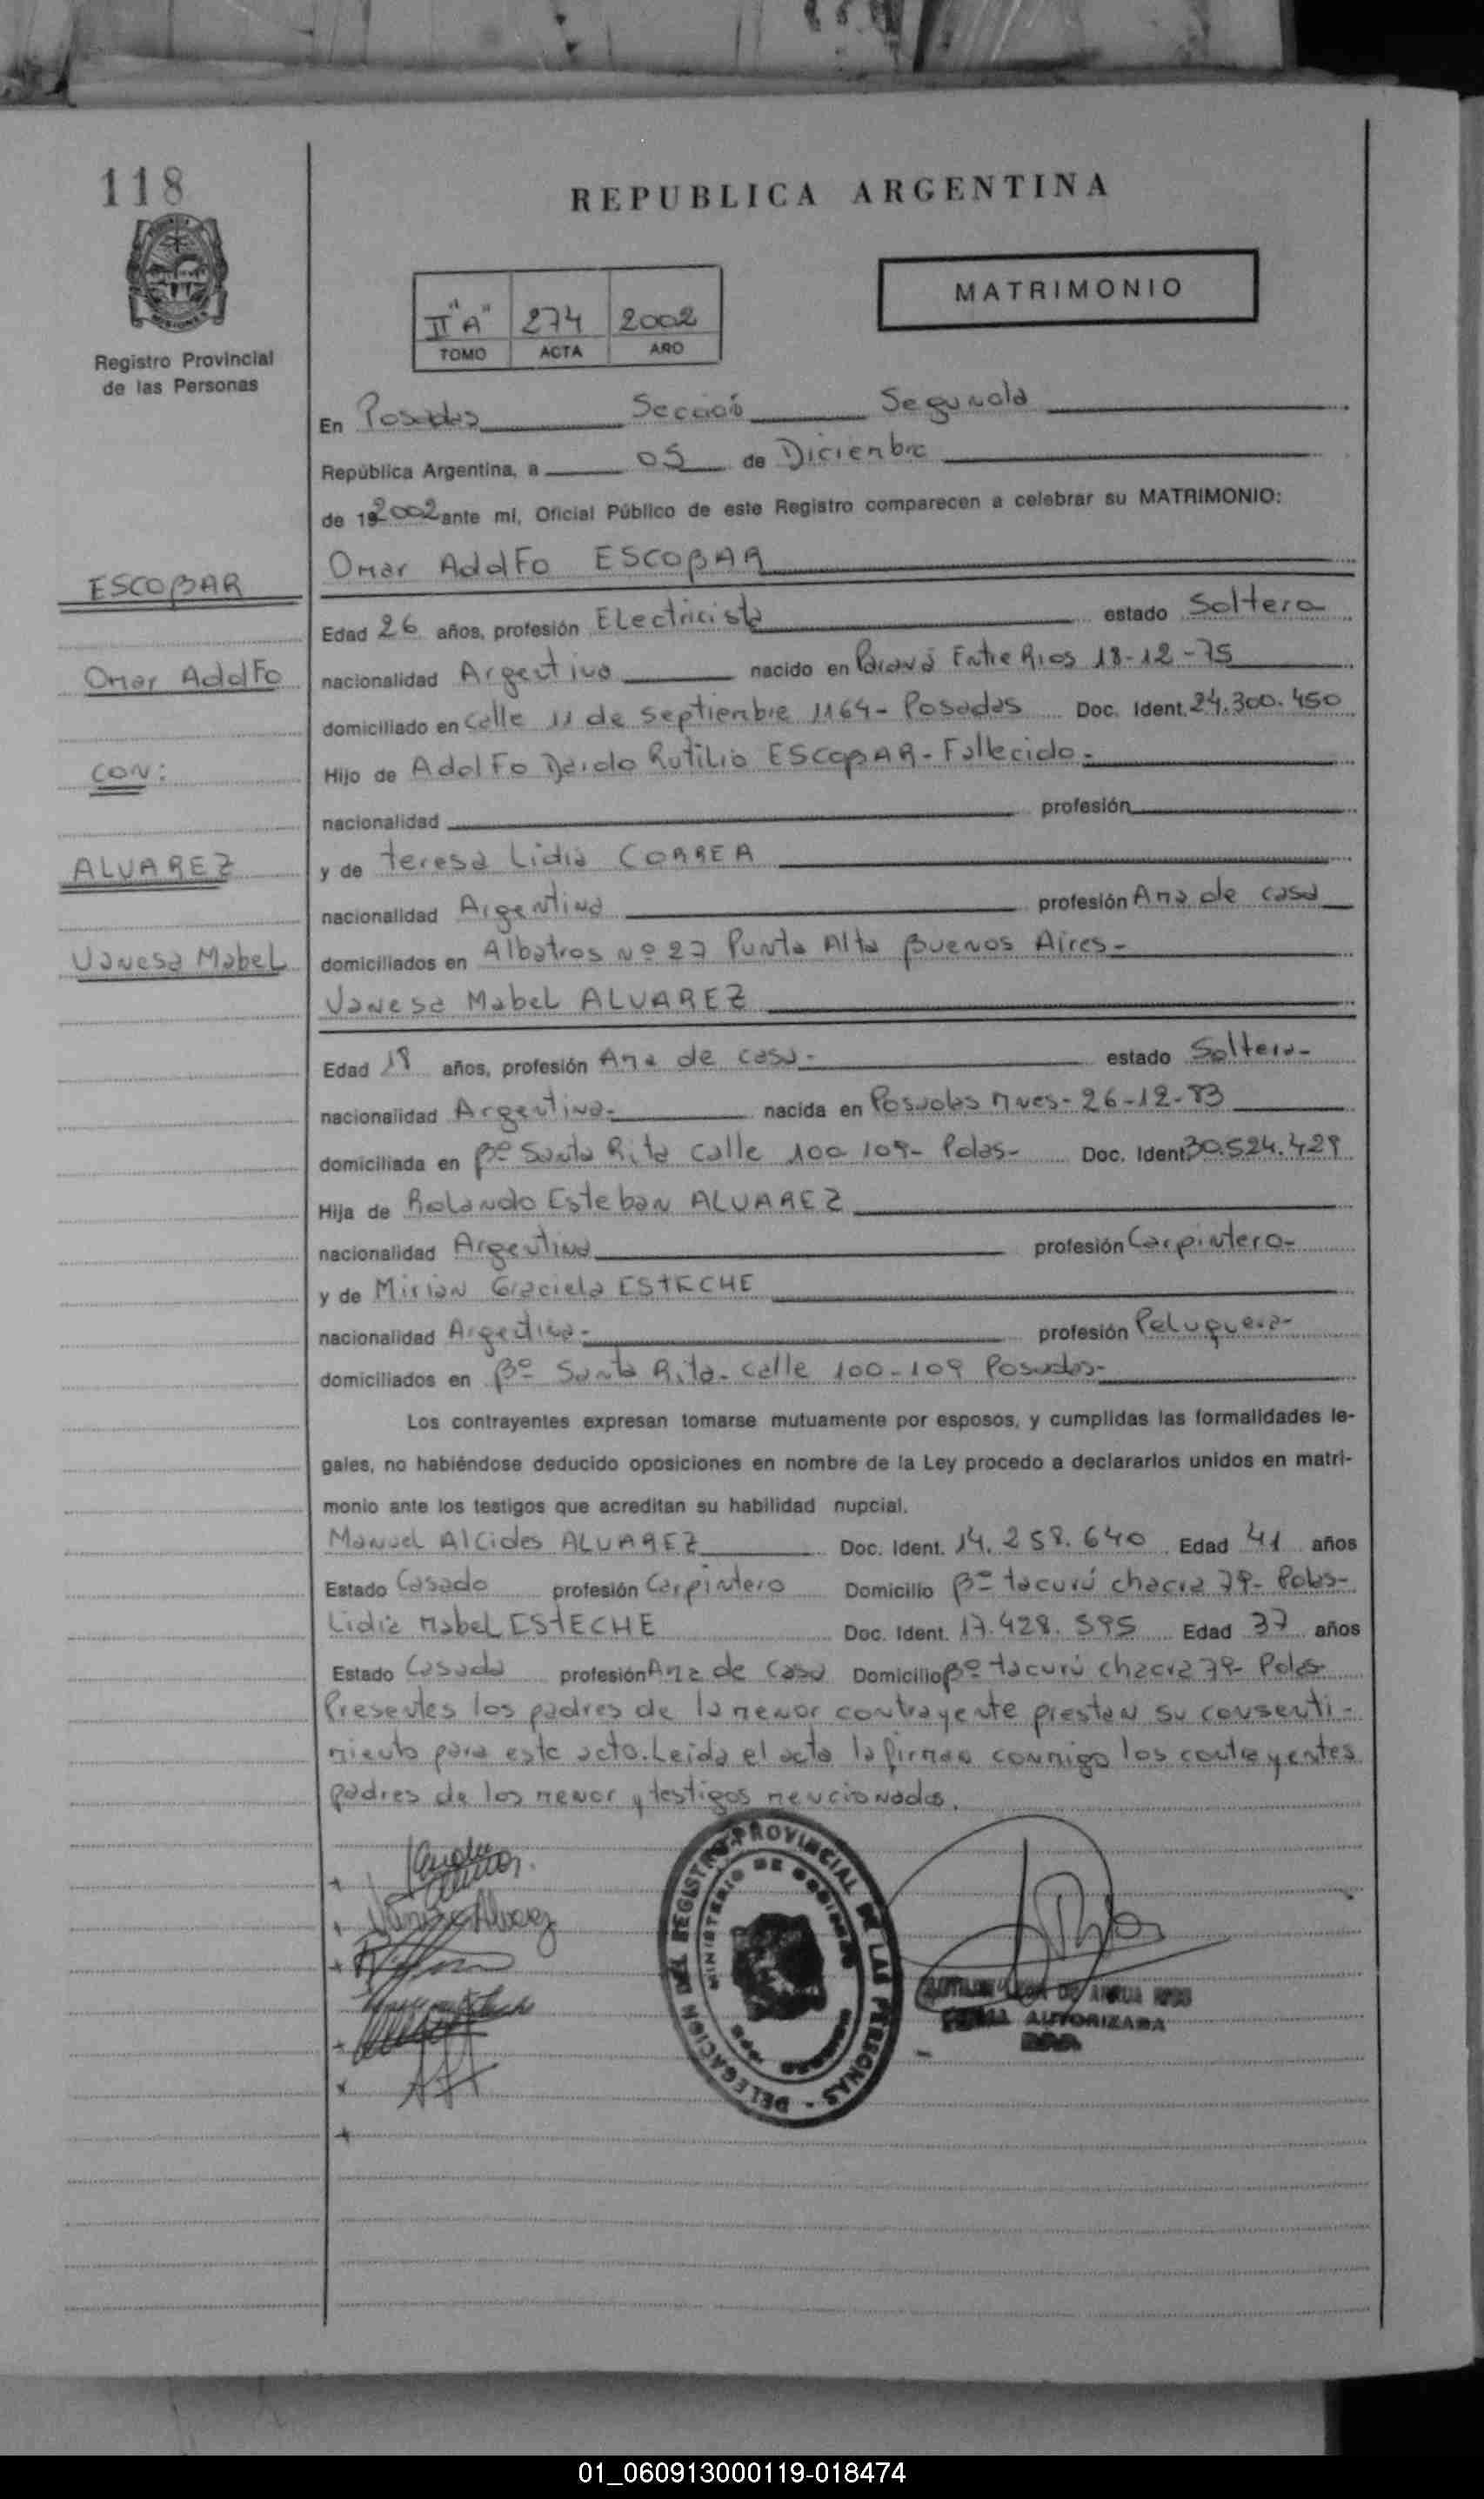 118
REPUBLICA ARGENTINA
MATRIMONIO
II "A" 274 2002
TOMO ACTA AÑO
Registro Provincial
de las Personas
En Posadas Sección Segunda
República Argentina, a 05 de Diciembre
de 19 2002 ante mi, Oficial Público de este Registro comparecen a celebrar su MATRIMONIO:
Omar Adolfo ESCOBAR
ESCOBAR
Edad 26 años, profesión Electricista estado Soltero
Omar Adolfo
nacionalidad Argentino nacido en Paraná Entre Rios 18-12-75
domiciliado en Calle 11 de Septiembre 1164- Posadas Doc. Ident. 24.300.450
CON:
Hijo de Adolfo Rutilio ESCOBAR- Fallecido-
nacionalidad profesión
ALVAREZ
y de teresa Lidia CORREA
nacionalidad Argentina profesión Ama de casa
Vanesa Mabel
domiciliados en Albatros Nº 27 Punta Alta Buenos Aires-
Vanesa Mabel ALVAREZ
Edad 18 años, profesión Ama de casa- estado Soltera-
nacionalidad Argentina- nacida en Posadas Mnes- 26-12-83
domiciliada en Bº Santa Rita calle 100-109- Pdas- Doc. Ident 30.524.429
Hija de Rolando Esteban ALVAREZ
nacionalidad Argentino profesión Carpintero-
y de Mirian Graciela ESTECHE
nacionalidad Argentina- profesión Peluquera-
domiciliados en Bº Santa Rita- calle 100-109 Posadas-
Los contrayentes expresan tomarse mutuamente por esposos, y cumplidas las formalidades le-
gales, no habiéndose deducido oposiciones en nombre de la Ley procedo a declararlos unidos en matri-
monio ante los testigos que acreditan su habilidad nupcial.
Manuel Alcides ALVAREZ Doc. Ident. 14.258.640 Edad 41 años
Estado Casado profesión Carpintero Domicilio Bº tacurú chacra 79- Pdas-
Lidia Mabel ESTECHE Doc. Ident. 17.428.595 Edad 37 años
Estado Casada profesión Ama de Casa Domicilio Bº tacurú chacra 79- Pdas-
Presentes los padres de la menor contrayente prestan su consenti-
miento para este acto. Leida el acta la firman conmigo los contrayentes
padres de los menor y testigos mencionados.
Vanesa Alvarez
DELEGACION DEL REGISTRO PROVINCIAL DE LAS PERSONAS
MINISTERIO DE GOBIERNO
FIRMA AUTORIZADA
01_060913000119-018474